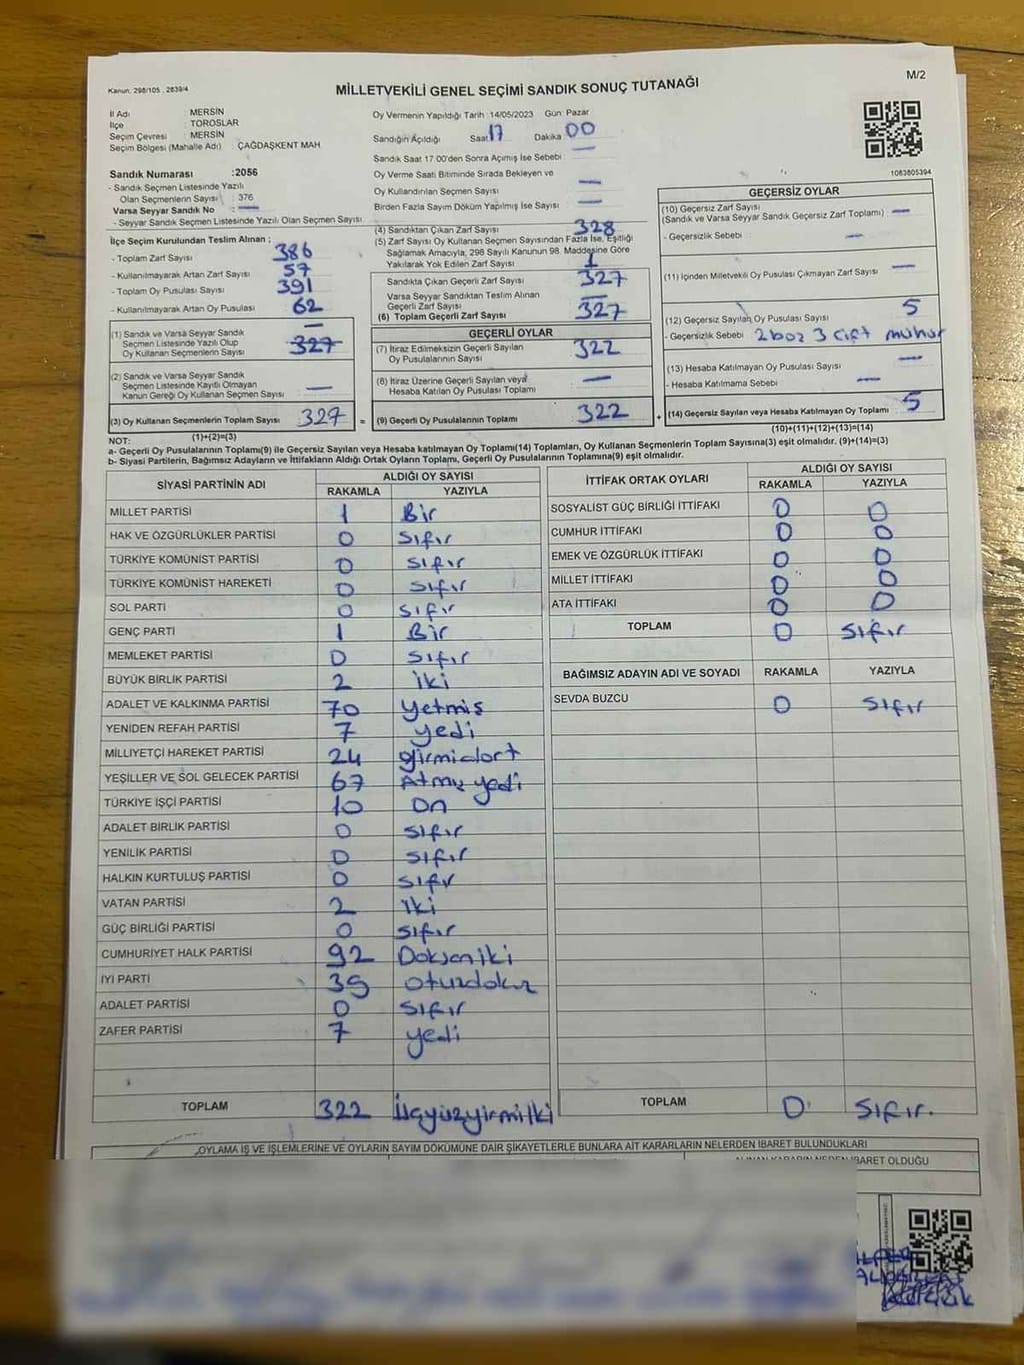 Kanun: 298/105 , 2839/4
MİLLETVEKİLİ GENEL SEÇİMİ SANDIK SONUÇ TUTANAĞI
M/2
İl Adı : MERSİN
İlçe : TOROSLAR
Seçim Çevresi : MERSİN
Seçim Bölgesi (Mahalle Adı) : ÇAĞDAŞKENT MAH
Sandık Numarası :2056
- Sandık Seçmen Listesinde Yazılı
Olan Seçmenlerin Sayısı : 376
Varsa Seyyar Sandık No : —
- Seyyar Sandık Seçmen Listesinde Yazılı Olan Seçmen Sayısı
İlçe Seçim Kurulundan Teslim Alınan :
- Toplam Zarf Sayısı 386
- Kullanılmayarak Artan Zarf Sayısı 57
- Toplam Oy Pusulası Sayısı 391
- Kullanılmayarak Artan Oy Pusulası 62
(1) Sandık ve Varsa Seyyar Sandık
Seçmen Listesinde Yazılı Olup
Oy Kullanan Seçmenlerin Sayısı 327
(2) Sandık ve Varsa Seyyar Sandık
Seçmen Listesinde Kayıtlı Olmayan
Kanun Gereği Oy Kullanan Seçmen Sayısı —
(3) Oy Kullanan Seçmenlerin Toplam Sayısı 327
(1)+(2)=(3)
Oy Vermenin Yapıldığı Tarih :14/05/2023 Gün: Pazar
Sandığın Açıldığı Saat 17 Dakika 00
Sandık Saat 17.00'den Sonra Açımış İse Sebebi —
Oy Verme Saati Bitiminde Sırada Bekleyen ve
Oy Kullandırılan Seçmen Sayısı —
Birden Fazla Sayım Döküm Yapılmış İse Sayısı —
(4) Sandıktan Çıkan Zarf Sayısı 328
(5) Zarf Sayısı Oy Kullanan Seçmen Sayısından Fazla İse, Eşitliği
Sağlamak Amacıyla, 298 Sayılı Kanunun 98. Maddesine Göre
Yakılarak Yok Edilen Zarf Sayısı 1
Sandıkta Çıkan Geçerli Zarf Sayısı 327
Varsa Seyyar Sandıktan Teslim Alınan
Geçerli Zarf Sayısı —
(6) Toplam Geçerli Zarf Sayısı 327
GEÇERLİ OYLAR
(7) İtiraz Edilmeksizin Geçerli Sayılan
Oy Pusulalarının Sayısı 322
(8) İtiraz Üzerine Geçerli Sayılan veya
Hesaba Katılan Oy Pusulası Toplamı —
= (9) Geçerli Oy Pusulalarının Toplamı 322
1083805394
GEÇERSİZ OYLAR
(10) Geçersiz Zarf Sayısı
(Sandık ve Varsa Seyyar Sandık Geçersiz Zarf Toplamı) —
- Geçersizlik Sebebi —
(11) İçinden Milletvekili Oy Pusulası Çıkmayan Zarf Sayısı —
(12) Geçersiz Sayılan Oy Pusulası Sayısı 5
- Geçersizlik Sebebi 2 boz 3 çift mühür
(13) Hesaba Katılmayan Oy Pusulası Sayısı —
- Hesaba Katılmama Sebebi —
+ (14) Geçersiz Sayılan veya Hesaba Katılmayan Oy Toplamı 5
(10)+(11)+(12)+(13)=(14)
NOT:
a- Geçerli Oy Pusulalarının Toplamı(9) ile Geçersiz Sayılan veya Hesaba katılmayan Oy Toplamı(14) Toplamları, Oy Kullanan Seçmenlerin Toplam Sayısına(3) eşit olmalıdır. (9)+(14)=(3)
b- Siyasi Partilerin, Bağımsız Adayların ve İttifakların Aldığı Ortak Oyların Toplamı, Geçerli Oy Pusulalarının Toplamına(9) eşit olmalıdır.
SİYASİ PARTİNİN ADI ALDIĞI OY SAYISI
RAKAMLA YAZIYLA
MİLLET PARTİSİ 1 Bir
HAK VE ÖZGÜRLÜKLER PARTİSİ 0 Sıfır
TÜRKİYE KOMÜNİST PARTİSİ 0 Sıfır
TÜRKİYE KOMÜNİST HAREKETİ 0 Sıfır
SOL PARTİ 0 Sıfır
GENÇ PARTİ 1 Bir
MEMLEKET PARTİSİ 0 Sıfır
BÜYÜK BİRLİK PARTİSİ 2 iki
ADALET VE KALKINMA PARTİSİ 70 Yetmiş
YENİDEN REFAH PARTİSİ 7 yedi
MİLLİYETÇİ HAREKET PARTİSİ 24 yirmidört
YEŞİLLER VE SOL GELECEK PARTİSİ 67 Atmış yedi
TÜRKİYE İŞÇİ PARTİSİ 10 On
ADALET BİRLİK PARTİSİ 0 Sıfır
YENİLİK PARTİSİ 0 Sıfır
HALKIN KURTULUŞ PARTİSİ 0 Sıfır
VATAN PARTİSİ 2 iki
GÜÇ BİRLİĞİ PARTİSİ 0 Sıfır
CUMHURİYET HALK PARTİSİ 92 Doksaniki
İYİ PARTİ 39 Otuzdokuz
ADALET PARTİSİ 0 Sıfır
ZAFER PARTİSİ 7 yedi
TOPLAM 322 Üçyüzyirmiiki
İTTİFAK ORTAK OYLARI ALDIĞI OY SAYISI
RAKAMLA YAZIYLA
SOSYALİST GÜÇ BİRLİĞİ İTTİFAKI 0 0
CUMHUR İTTİFAKI 0 0
EMEK VE ÖZGÜRLÜK İTTİFAKI 0 0
MİLLET İTTİFAKI 0 0
ATA İTTİFAKI 0 0
TOPLAM 0 Sıfır
BAĞIMSIZ ADAYIN ADI VE SOYADI RAKAMLA YAZIYLA
SEVDA BUZCU 0 Sıfır
TOPLAM 0 Sıfır.
OYLAMA İŞ VE İŞLEMLERİNE VE OYLARIN SAYIM DÖKÜMÜNE DAİR ŞİKAYETLERLE BUNLARA AİT KARARLARIN NELERDEN İBARET BULUNDUKLARI
ALINAN KARARIN NEDEN İBARET OLDUĞU